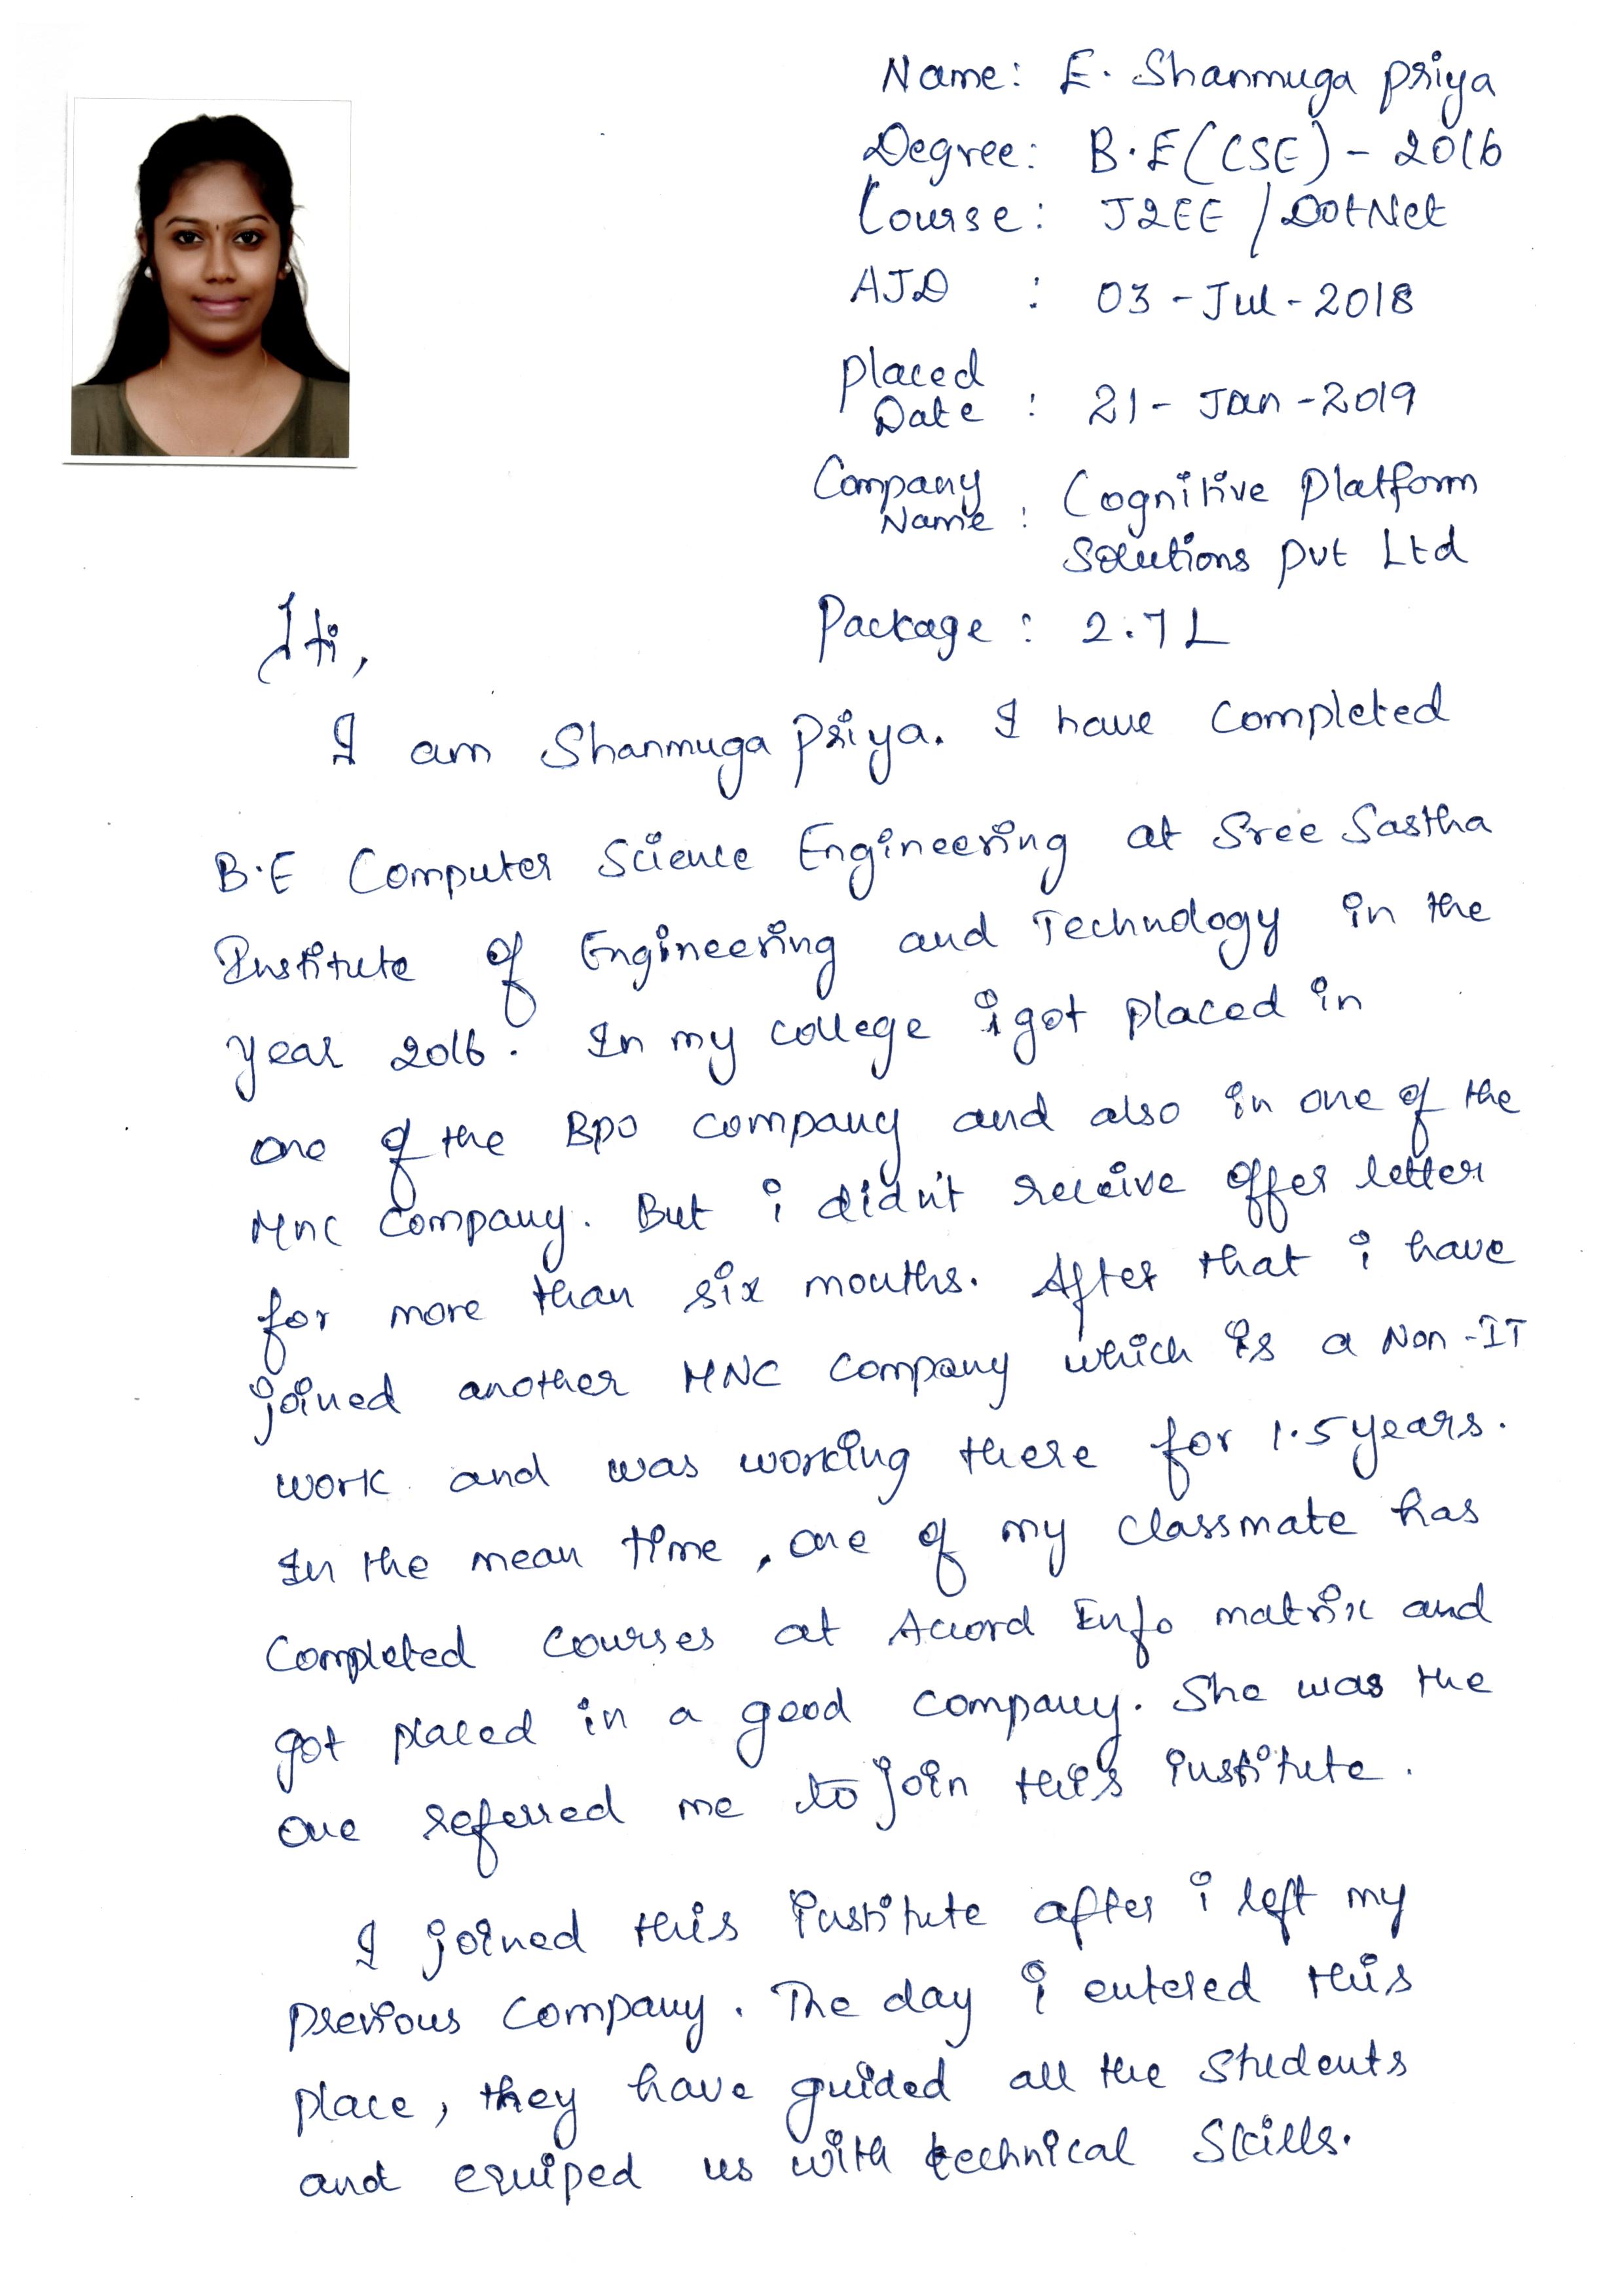 Name: E. Shanmuga priya
Degree: B.E(CSE) - 2016
Course: J2EE / DotNet
AJD : 03 - Jul - 2018
Placed Date : 21 - Jan - 2019
Company Name : Cognitive Platform
Solutions pvt Ltd
Package : 2.7 L
Hi,
I am Shanmuga Priya. I have completed
B.E Computer Science Engineering at Sree Sastha
Institute of Engineering and Technology in the
year 2016. In my college i got placed in
one of the Bpo company and also in one of the
Mnc company. But i didn't receive offer letter
for more than six months. After that i have
joined another MNC company which is a Non-IT
work and was working there for 1.5 years.
In the mean time, one of my classmate has
Completed courses at Accord Info matrix and
got placed in a good company. She was the
one referred me to join this institute.
I joined this institute after i left my
previous company. The day i entered this
place, they have guided all the students
and equiped us with technical skills.